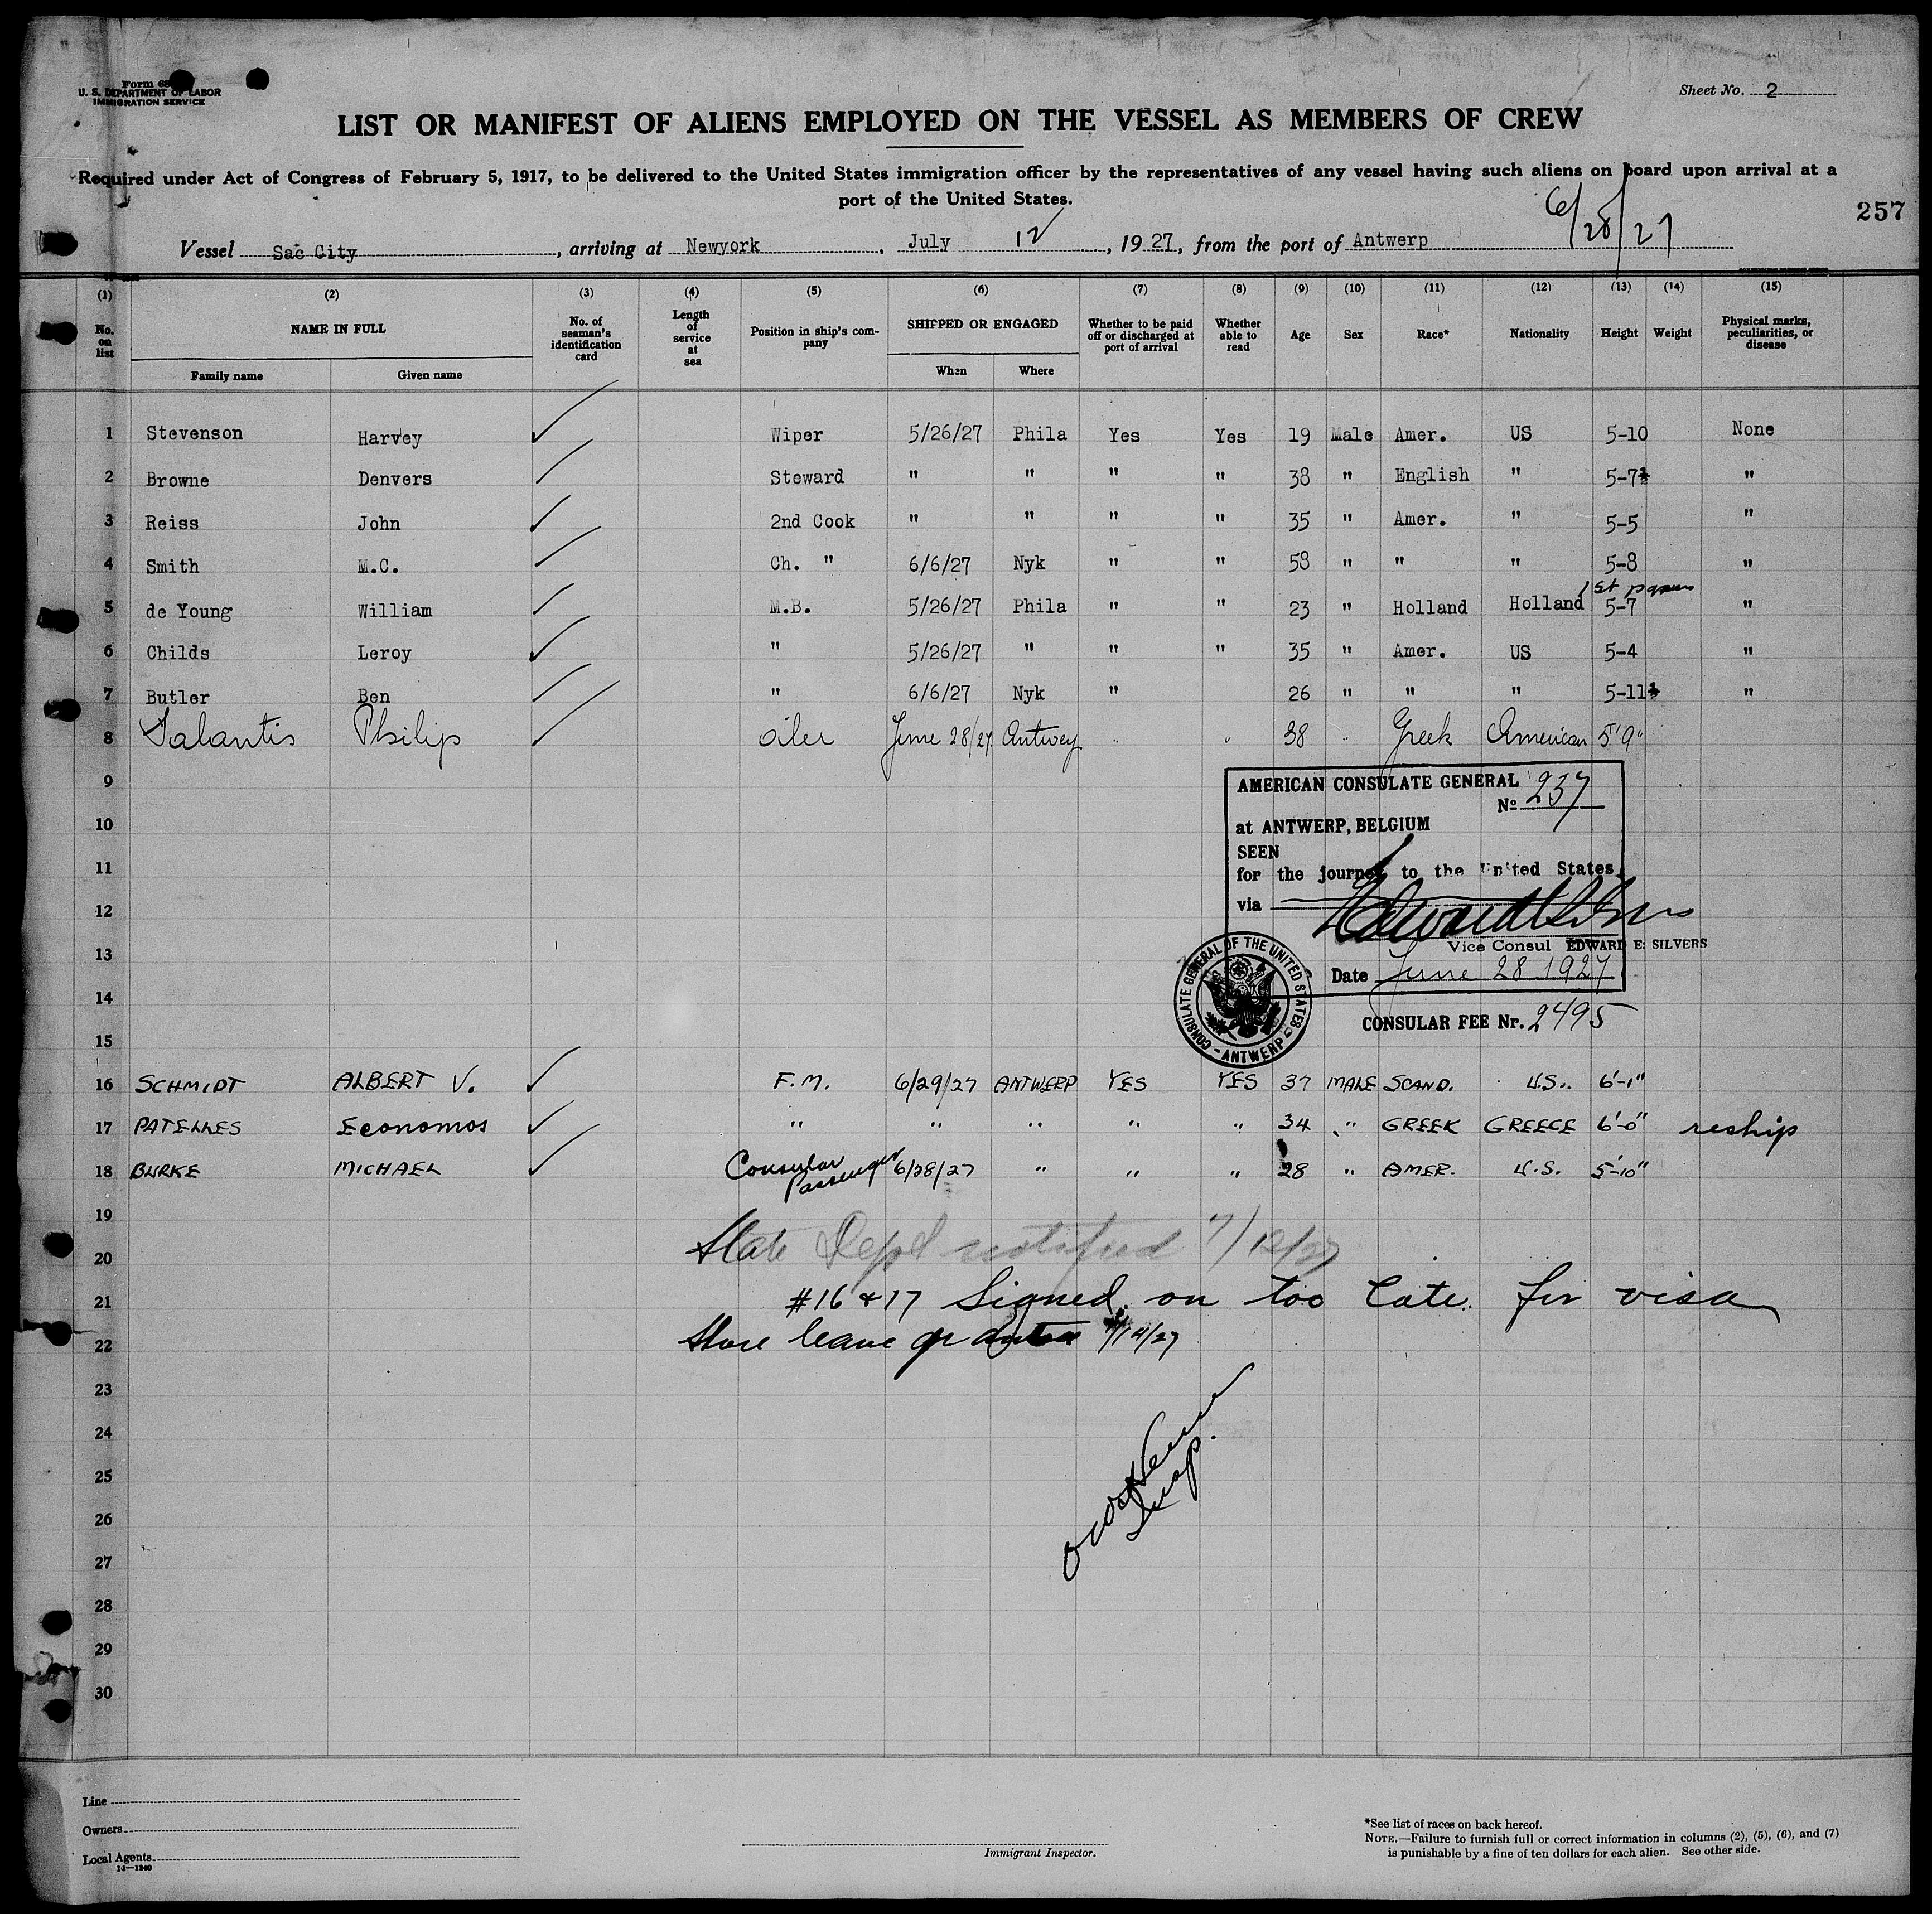 Form 68
U. S. DEPARTMENT OF LABOR
IMMIGRATION SERVICE
Sheet No. 2
LIST OR MANIFEST OF ALIENS EMPLOYED ON THE VESSEL AS MEMBERS OF CREW
Required under Act of Congress of February 5, 1917, to be delivered to the United States immigration officer by the representatives of any vessel having such aliens on board upon arrival at a
port of the United States.
6/28/27
257
Vessel Sac City, arriving at Newyork, July 12, 1927, from the port of Antwerp
(1) (2) (3) (4) (5) (6) (7) (8) (9) (10) (11) (12) (13) (14) (15)
No. on list NAME IN FULL No. of seaman's identification card Length of service at sea Position in ship's company SHIPPED OR ENGAGED Whether to be paid off or discharged at port of arrival Whether able to read Age Sex Race* Nationality Height Weight Physical marks, peculiarities, or disease
Family name Given name When Where
1 Stevenson Harvey Wiper 5/26/27 Phila Yes Yes 19 Male Amer. US 5-10 None
2 Browne Denvers Steward " " " " 38 " English " 5-7½ "
3 Reiss John 2nd Cook " " " " 35 " Amer. " 5-5 "
4 Smith M.C. Ch. " 6/6/27 Nyk " " 58 " " " 5-8 "
1st papers
5 de Young William M.B. 5/26/27 Phila " " 23 " Holland Holland 5-7 "
6 Childs Leroy " 5/26/27 " " " 35 " Amer. US 5-4 "
7 Butler Ben " 6/6/27 Nyk " 26 " " " 5-11½ "
8 Salantis Philip oiler June 28/27 Antwep " " 38 " Greek American 5'9"
9
AMERICAN CONSULATE GENERAL
No 237
10
at ANTWERP, BELGIUM
SEEN
11
for the journey to the United States
12
via
Vice Consul EDWARD E. SILVERS
13
Date June 28 1927
CONSULATE GENERAL OF THE UNITED STATES - ANTWERP
14
CONSULAR FEE Nr. 2495
15
16 SCHMIDT ALBERT V. F.M. 6/29/27 ANTWERP YES YES 37 MALE SCAND. U.S. 6'-1"
17 PATELLES Economos " " " " " 34 " GREEK GREECE 6'-0" reship
18 BURKE MICHAEL Consular Passenger 6/28/27 " " " 28 " AMER. U.S. 5'-10"
19
State Dept notified 7/12/27
20
21 #16 & 17 Signed on too late for visa
22 Shore leave granted 7/12/27
23
24
25
Insp.
26
27
28
29
30
Line
Owners
Local Agents
14—1240
Immigrant Inspector.
*See list of races on back hereof.
NOTE.—Failure to furnish full or correct information in columns (2), (5), (6), and (7)
is punishable by a fine of ten dollars for each alien. See other side.